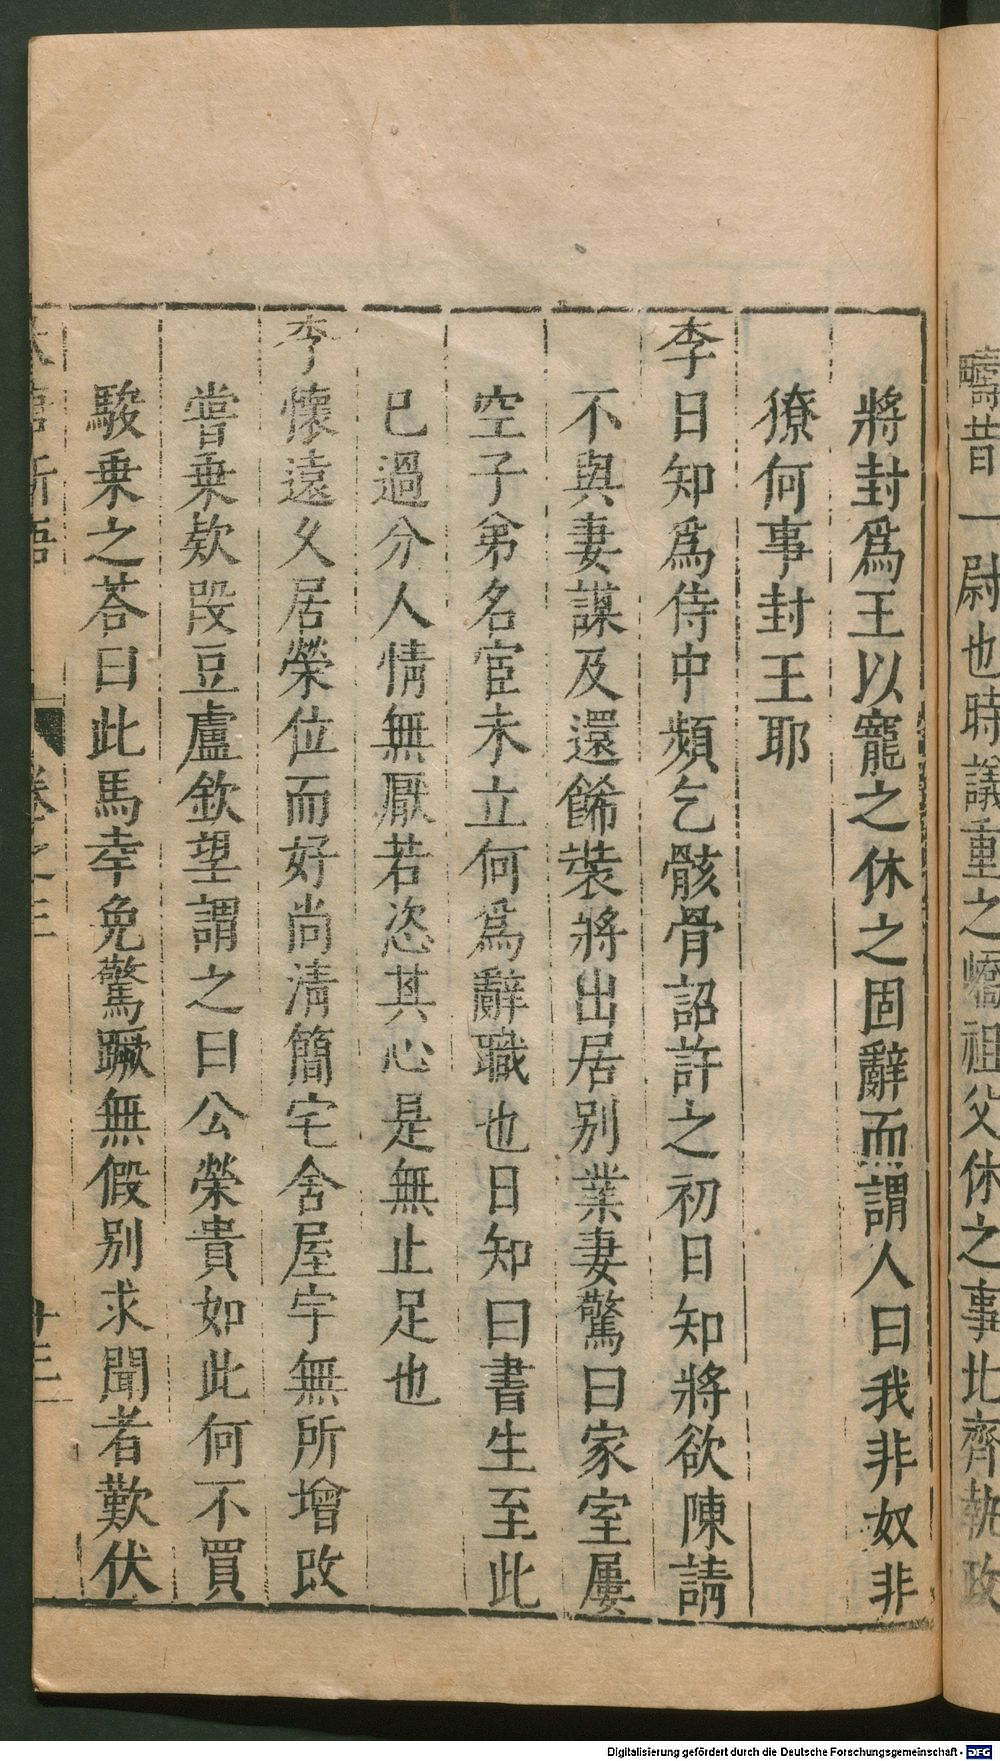 疇昔一尉也時議重之嶠祖父休之事北齊執政
將封爲王以寵之休之固辭而謂人曰我非奴非
獠何事封王耶
李日知爲侍中頻乞骸骨詔許之初日知將欲陳請
不與妻謀及還餙裝將出居别業妻驚曰家室屢
空子弟名宦未立何爲辭職也日知曰書生至此
已過分人情無厭若恣其心是無止足也
李懷遠久居榮位而好尚清簡宅舍屋宇無所增改
嘗乗欵段豆盧欽望謂之曰公榮貴如此何不買
駿乗之荅曰此馬幸免驚蹶無假别求聞者歎伏
大唐新語 卷之三 十三
Digitalisierung gefördert durch die Deutsche Forschungsgemeinschaft - DFG